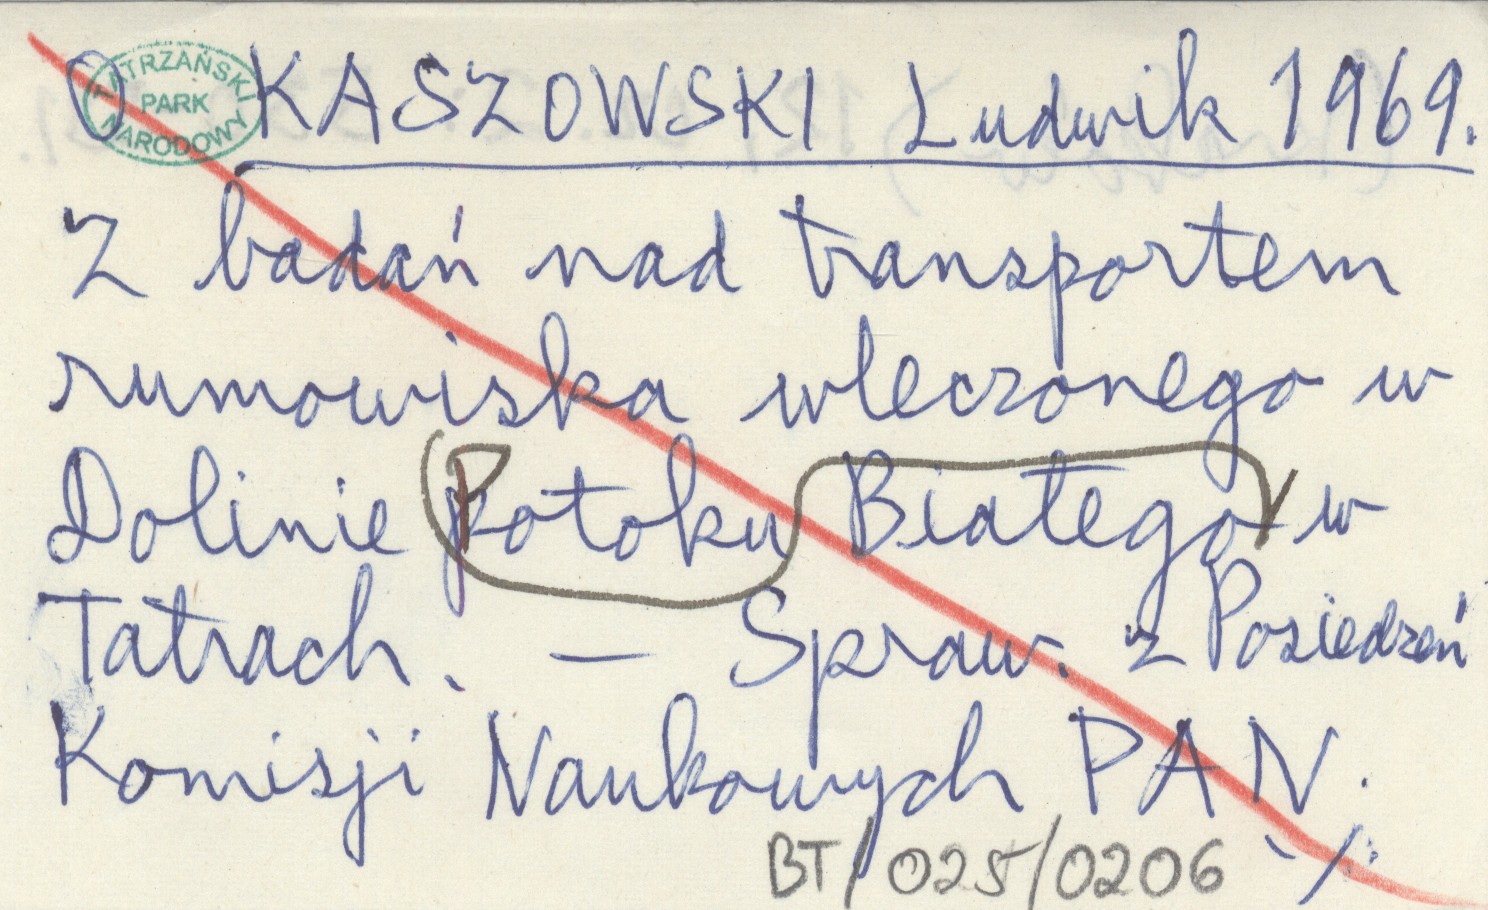 O KASZOWSKI Ludwik 1969.
TATRZAŃSKI
PARK
NARODOWY
Z badań nad transportem
rumowiska wleczonego w
Dolinie Potoku Białego w
Tatrach. — Spraw. z Posiedzeń
Komisji Naukowych PAN.
BT/025/0206 ·/·